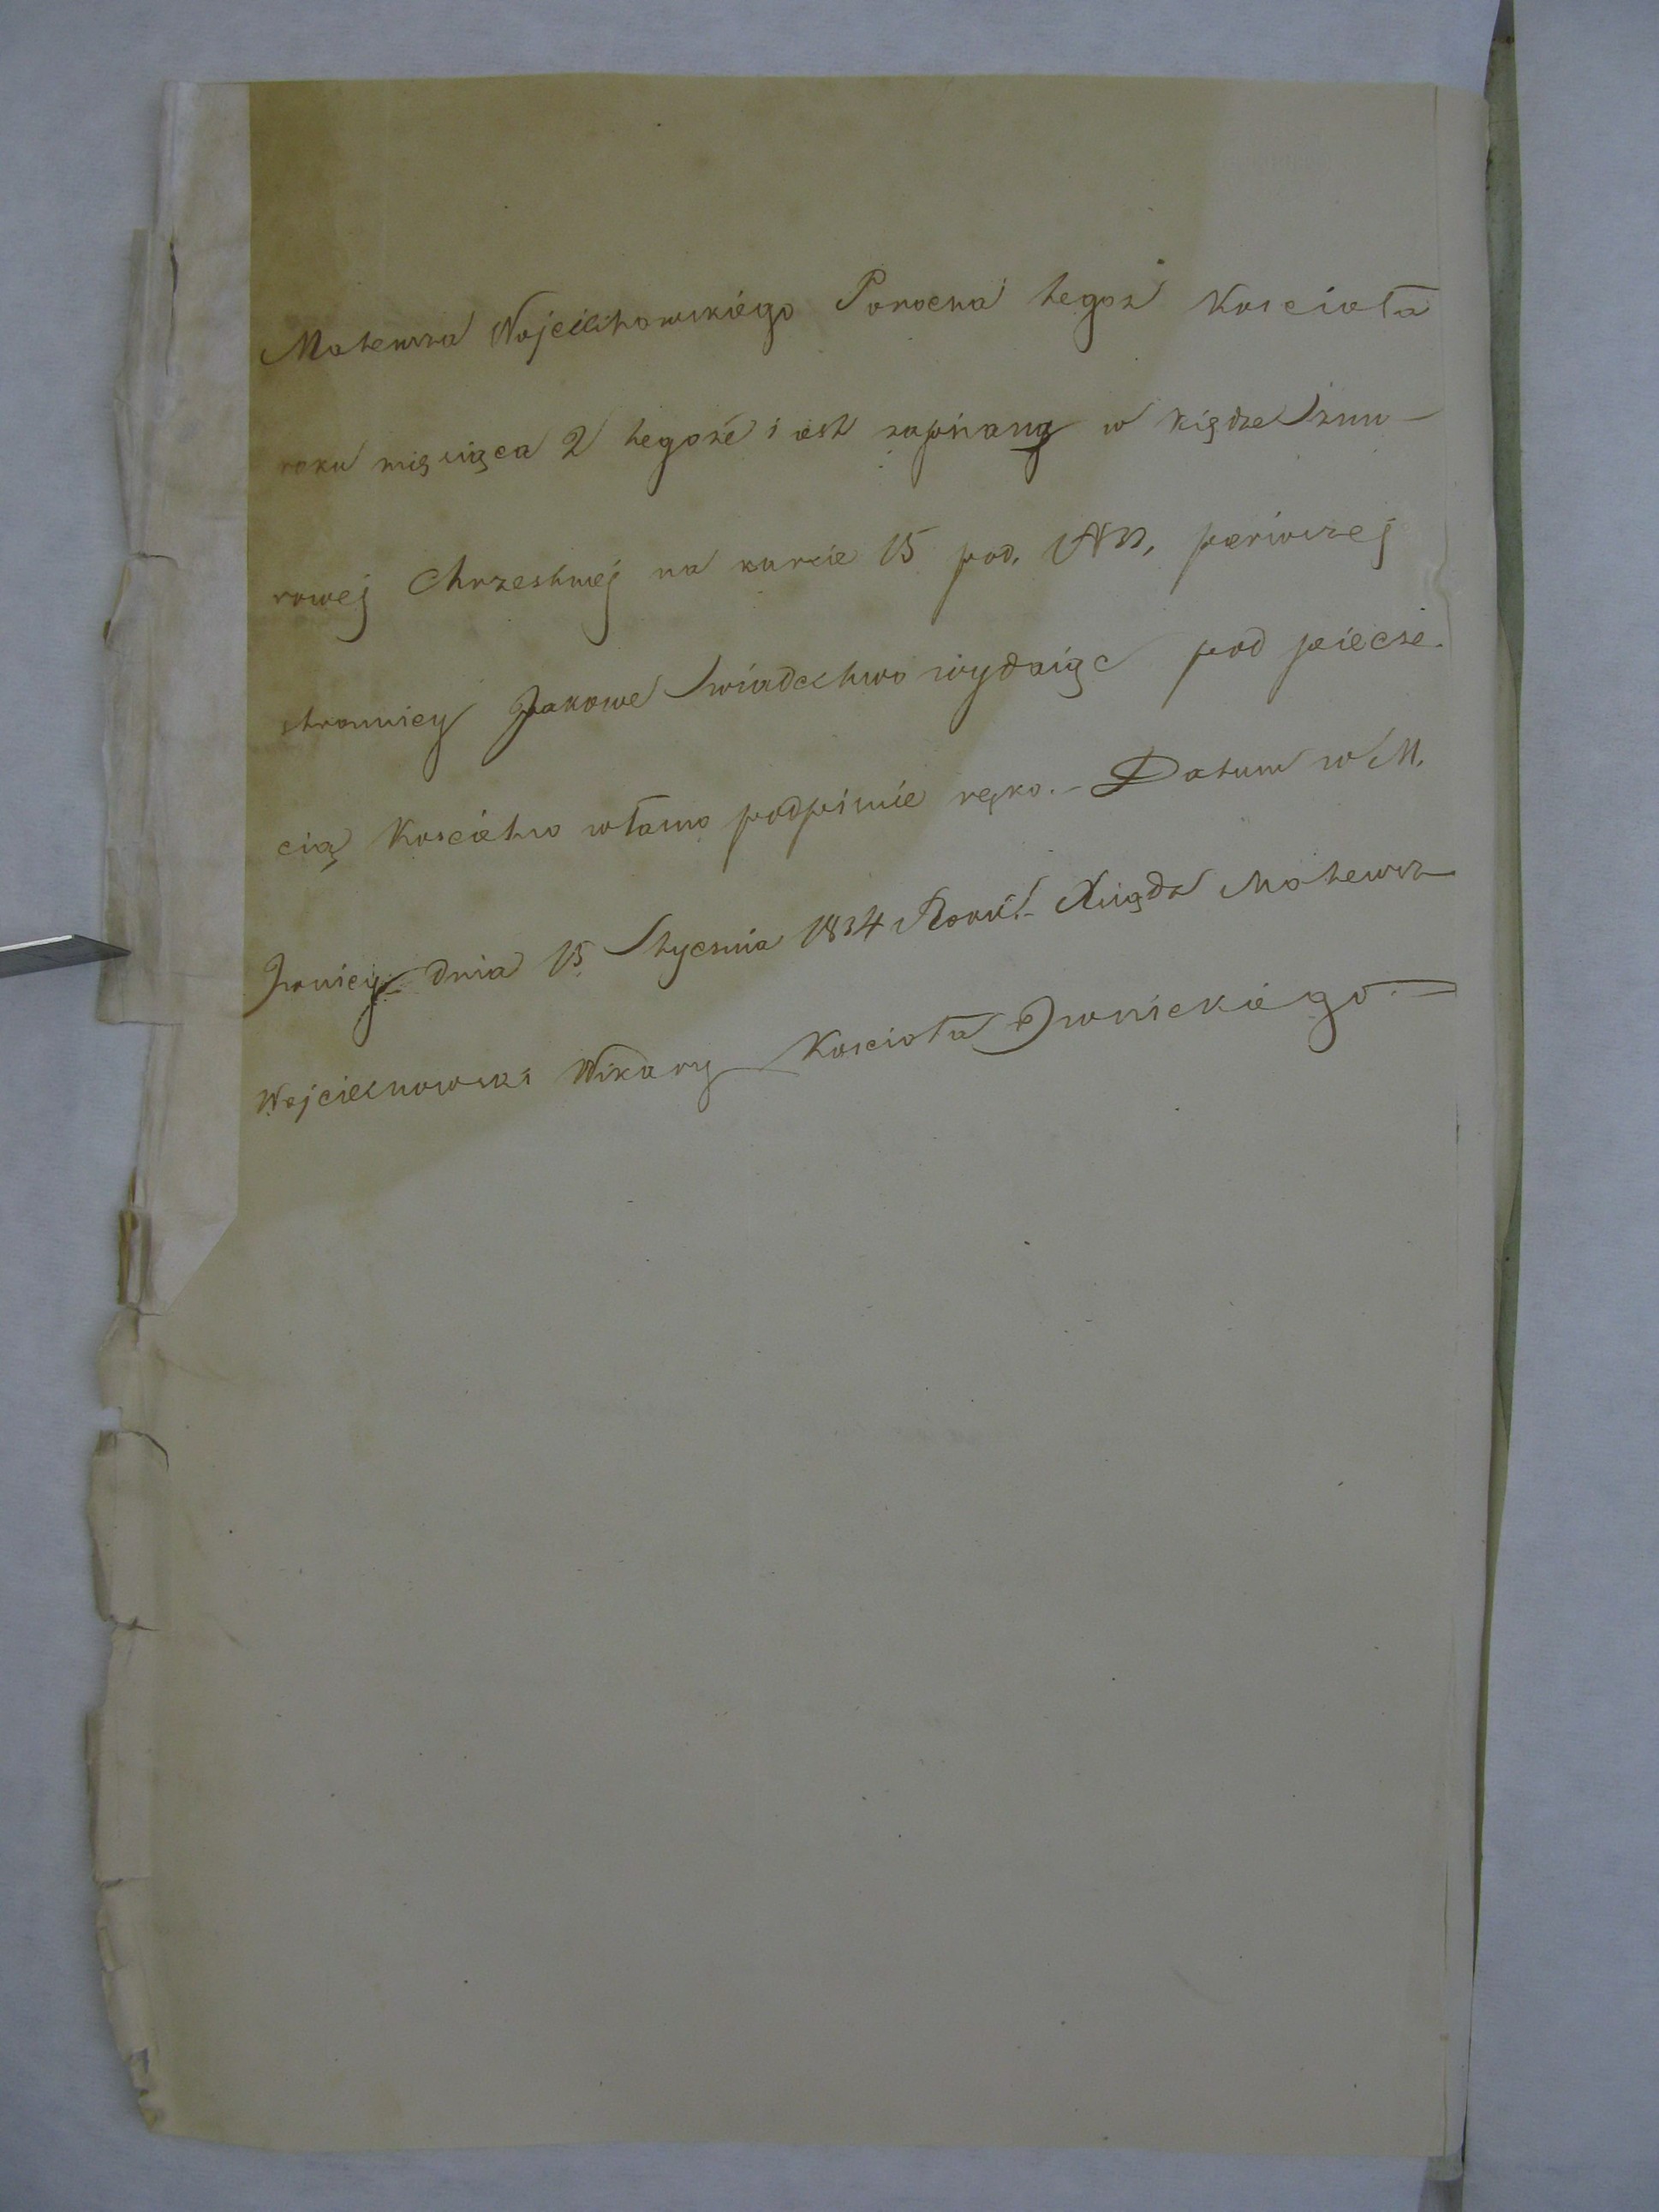 Mateusza Wojciechowskiego Parocha tegoż Koscioła
roku miesiąca 2 tegoże i est zapisany w Xiędze sznu-
rowej Chrzestnej na karcie 15 pod, AN, perwszej
stronnicy Jakowe Swiadectwo wydaiąc pod piecze-
cią Koscielno własno podpisuie ręko. - Datum w M,
Iwnicy dnia 15 Stycznia 1834 Roku. - Xiądz Mateusz
Wojciechowski Wikary Kosciola Iwnickiego. -